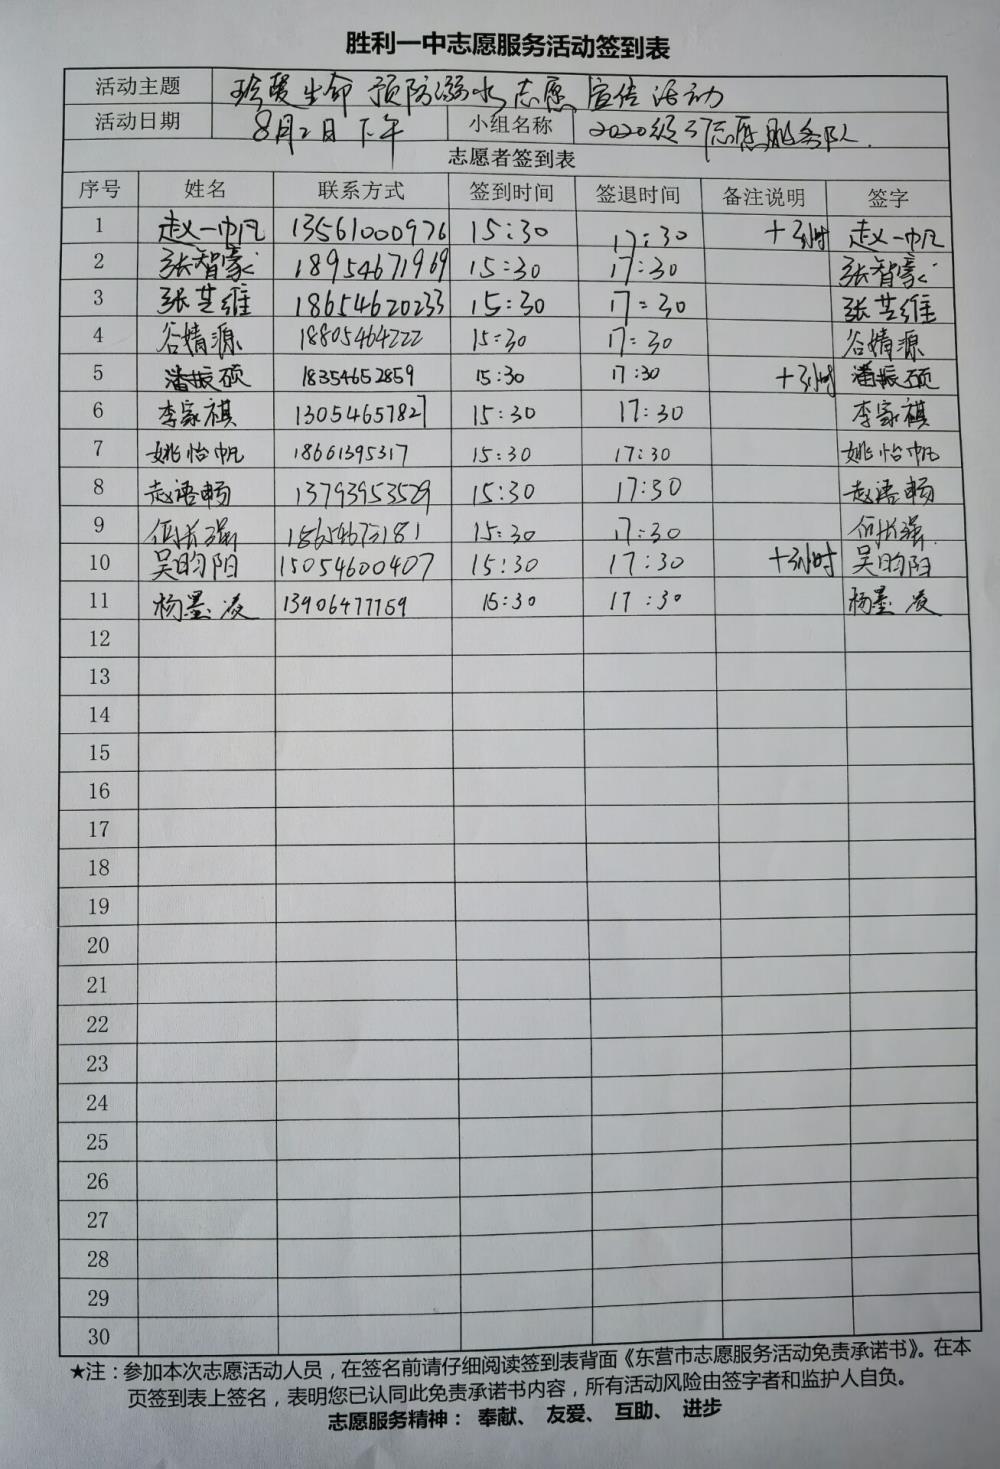 胜利一中志愿服务活动签到表
活动主题 珍爱生命 预防溺水志愿 宣传活动
活动日期 8月2日下午 小组名称 2020级 志愿服务队
志愿者签到表
序号 姓名 联系方式 签到时间 签退时间 备注说明 签字
1 赵一帆 13561000976 15:30 17:30 +1小时 赵一帆
2 张智豪 18954671969 15:30 17:30 张智豪
3 张芸维 18654620233 15:30 17:30 张芸维
4 谷婧源 18805464222 15:30 17:30 谷婧源
5 潘振硕 18354652859 15:30 17:30 +1小时 潘振硕
6 李家祺 13054657827 15:30 17:30 李家祺
7 姚怡帆 18661395317 15:30 17:30 姚怡帆
8 赵语畅 13793953529 15:30 17:30 赵语畅
9 伍长强 15:30 17:30 伍长强
10 吴昀阳 15054600407 15:30 17:30 +1小时 吴昀阳
11 杨墨凌 13906477759 15:30 17:30 杨墨凌
12
13
14
15
16
17
18
19
20
21
22
23
24
25
26
27
28
29
30
★注：参加本次志愿活动人员，在签名前请仔细阅读签到表背面《东营市志愿服务活动免责承诺书》。在本
页签到表上签名，表明您已认同此免责承诺书内容，所有活动风险由签字者和监护人自负。
志愿服务精神： 奉献、 友爱、 互助、 进步